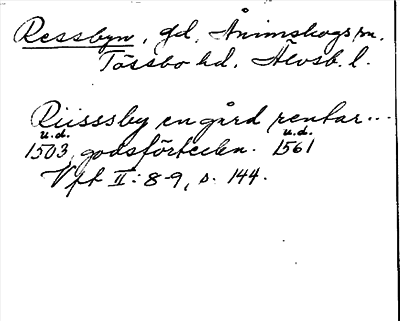 Ressbyn, gd, Ånimskogs sn,
Tössbo hd, Älvsb. l.
Riisssby en gård rentar...
u.d. u.d.
1503, godsförteckn. 1561
Vft II: 8-9, s. 144.